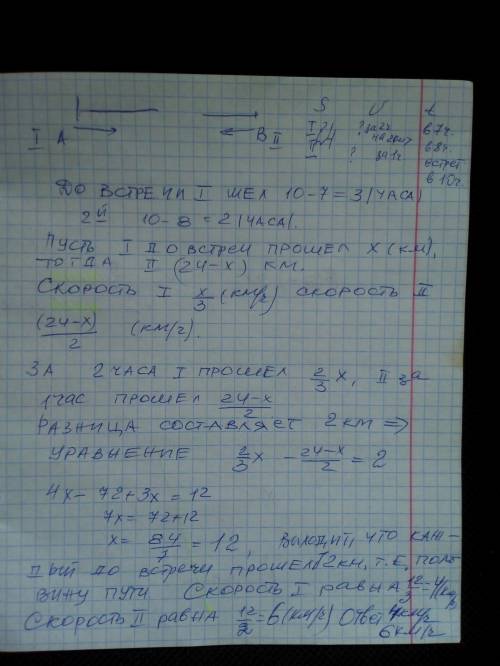 S V t
I A B II I 24 ? за 2ч. в 7ч.
II ? за 1ч. в 8ч.
встреч
в 10ч.
До встречи I шел 10-7=3 (часа)
2й 10-8=2 (часа).
Пусть I до встреч прошел x (км),
тогда II (24-x) км.
Скорость I x/3 (км/г) скорость II
(24-x)/2 (км/г).
За 2 часа I прошел 2/3 x, II за
1 час прошел (24-x)/2
Разница составляет 2 км =>
уравнение 2/3 x - (24-x)/2 = 2
4x - 72 + 3x = 12
7x = 72+12
x = 84/7 = 12, выходит, что каж-
дый до встречи прошел 12 км, т.е, поло
вину пути Скорость I равна 12/3 = 4 (км/г)
Скорость II равна 12/2 = 6 (км/г) Ответ 4км/г
6км/г